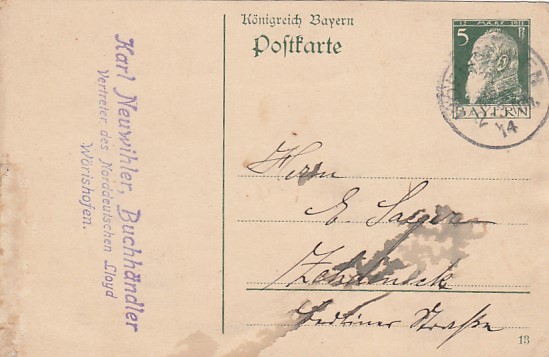 Königreich Bayern
Postkarte
12. MÄRZ 1911
5 Pf
BAYERN
14
Karl Neuwihler, Buchhändler
Vertreter des Norddeutschen Lloyd
Wörishofen.
Herrn
E.
Zehdenick
Berliner Straße
13